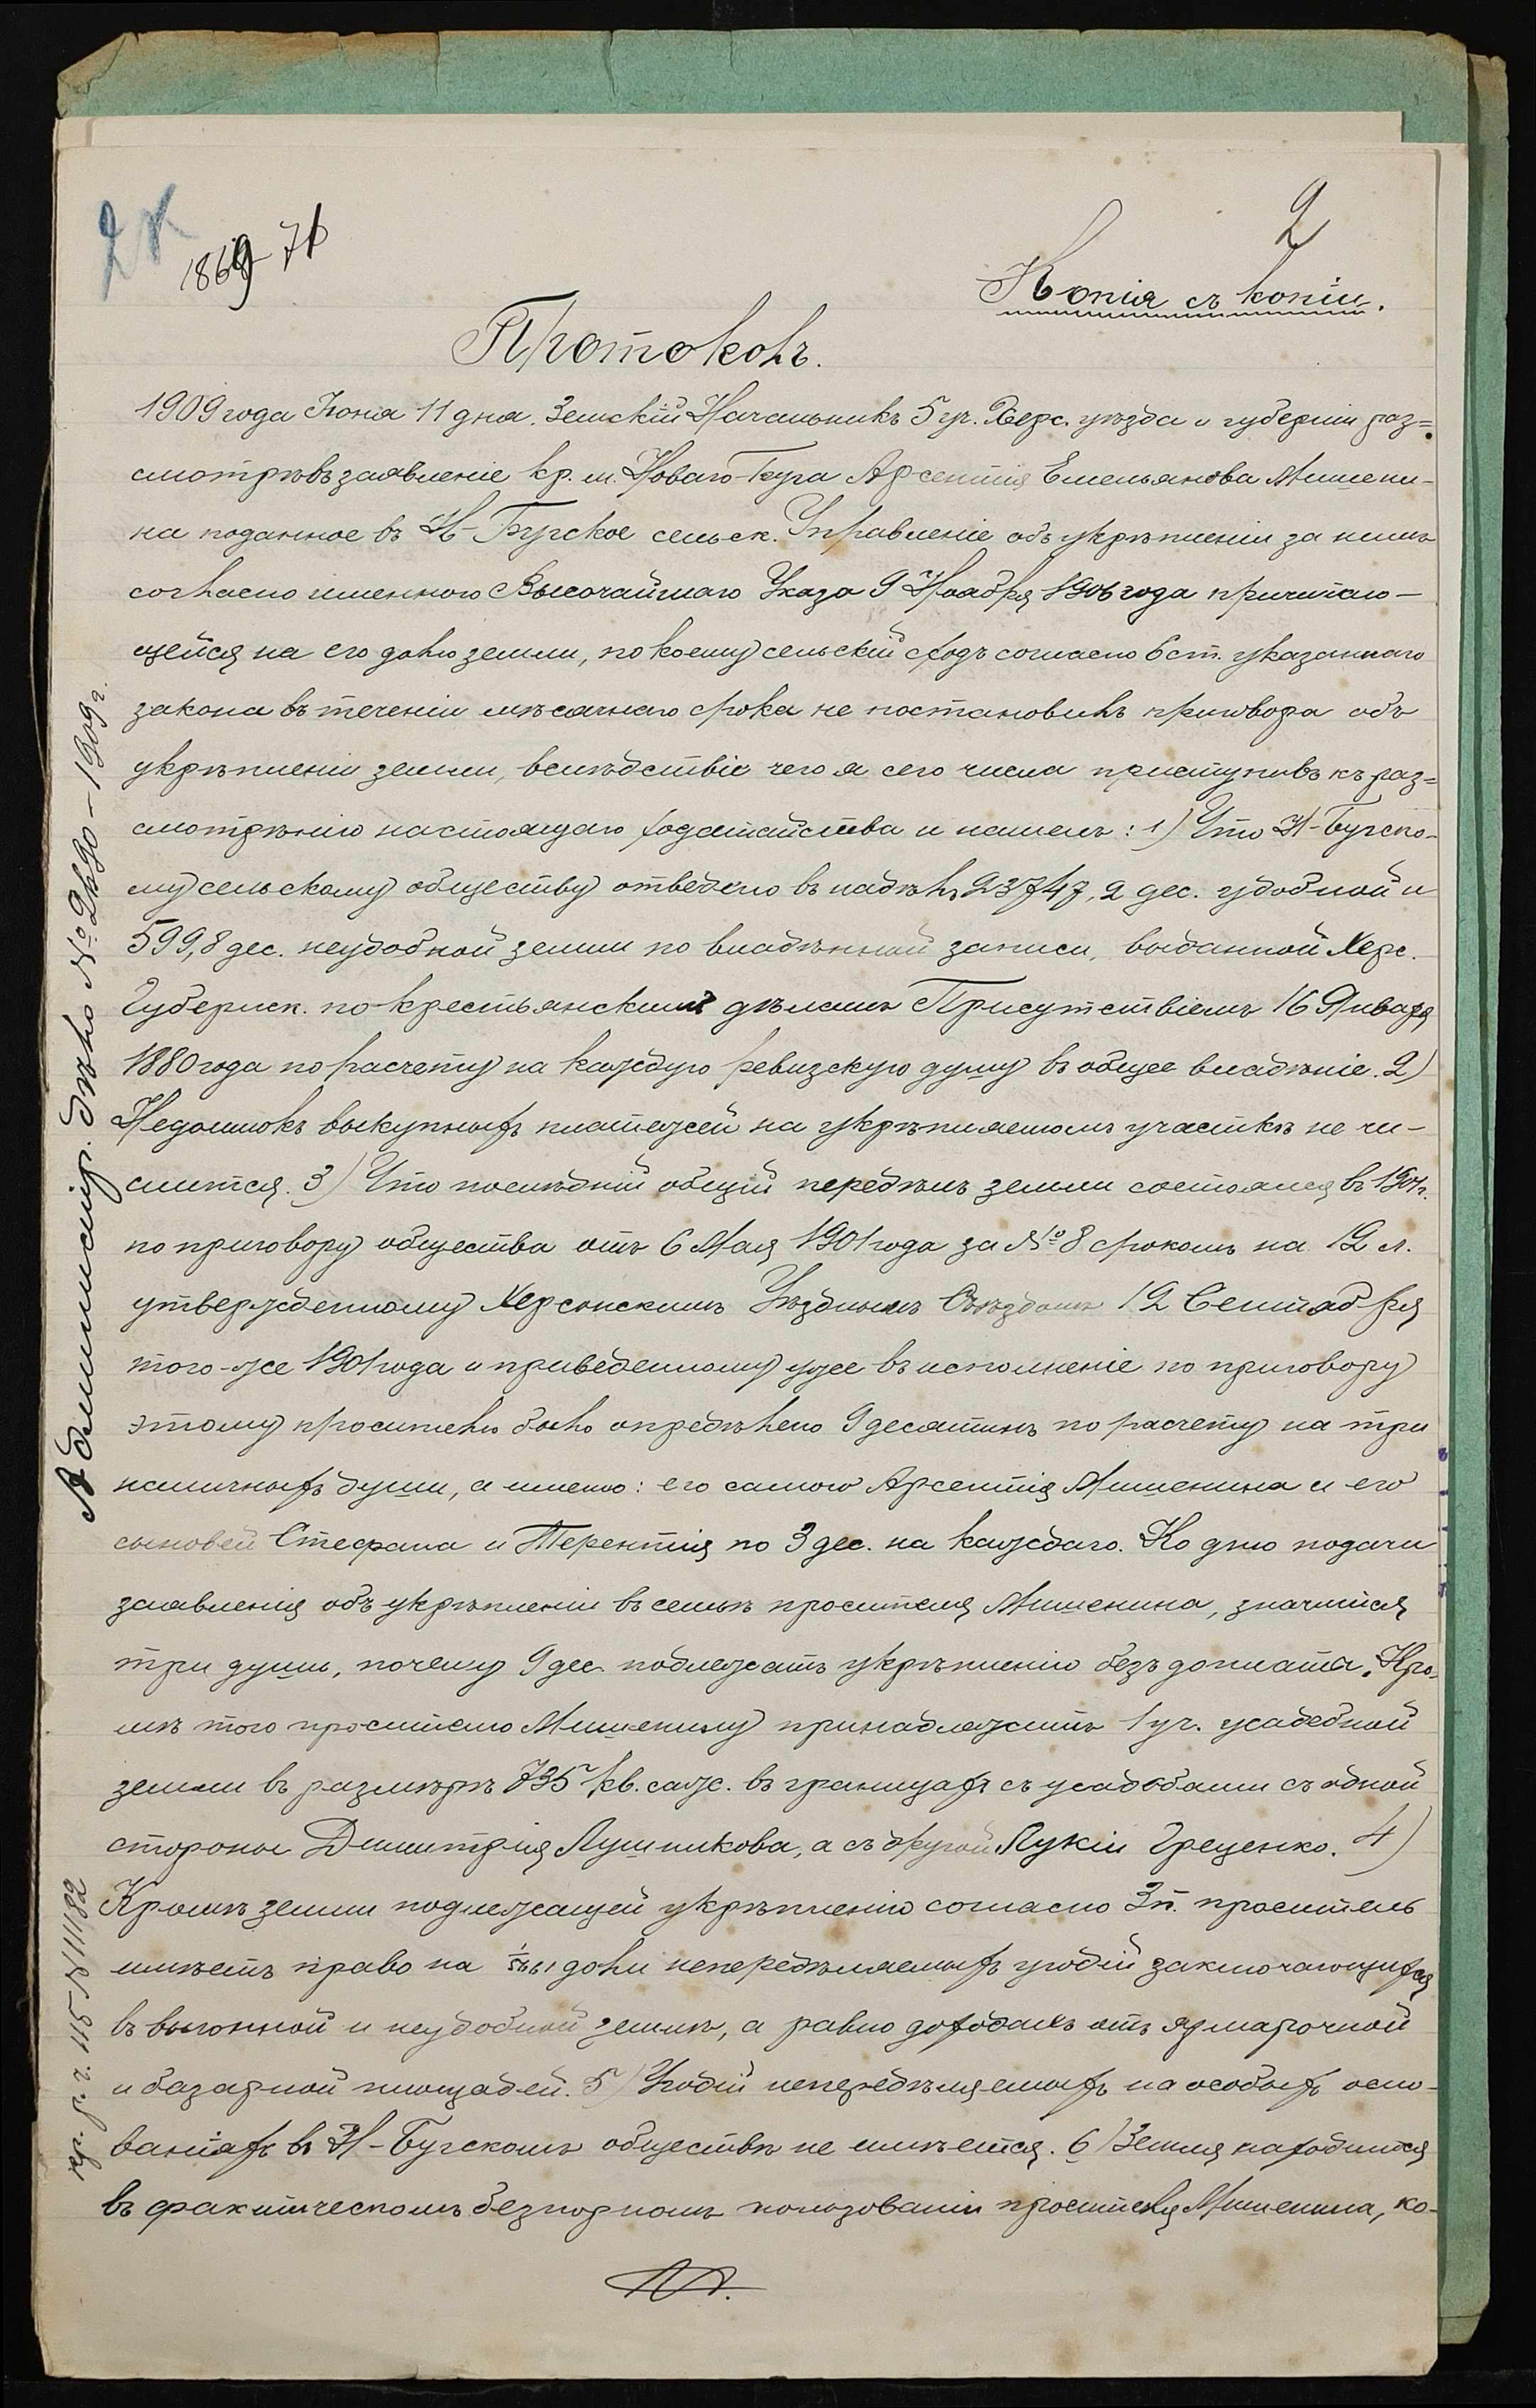 2
1869-71
Копія съ копіи.
Протоколъ.
1909 года Іюня 11 дня. Земскій Начальникъ 5 уч. Херс. уѣзда и губерніи раз=
смотрѣвъ заявленіе кр. м. Новаго-Буга Арсентія Емельянова Мишени-
на поданное въ Н-Бугское сельск. Управленіе объ укрѣпленіи за нимъ
согласно именного Высочайшаго Указа 9 Ноября 1906 года причитаю-
щейся на его долю земли, по коему сельскій сходъ согласно 6 ст. указаннаго
закона въ теченіи мѣсячнаго срока не постановилъ приговора объ
укрѣпленіи земли, вслѣдствіе чего я сего числа приступивъ къ раз=
смотрѣнію настоящаго ходатайства и нашелъ: 1) Что Н-Бугско-
му сельскому обществу отведено въ надѣлъ 23747,2 дес. удобной и
599,8 дес. неудобной земли по владѣнной записи, выданной Херс.
Губернск. по крестьянскимъ дѣламъ Присутствіемъ 16 Января
1880 года по расчету на каждую ревизскую душу въ общее владѣніе. 2)
Недоимокъ выкупныхъ платежей на укрѣпляемомъ участкѣ не чи-
слится. 3) Что послѣдній общій передѣлъ земли состоялся въ 1901 г.
по приговору общества отъ 6 Мая 1901 года за № 8 срокомъ на 12 л.
утвержденному Херсонскимъ Уѣзднымъ Съѣздомъ 12 Сентября
того-же 1901 года и приведенному уже въ исполненіе по приговору
этому просителю было опредѣлено 9 десятинъ по расчету на три
наличныхъ души, а именно: его самого Арсентія Мишенина и его
сыновей Стефана и Терентія по 3 дес. на каждаго. Ко дню подачи
заявленія объ укрѣпленіи въ семьѣ просителя Мишенина, значится
три души, почему 9 дес. подлежатъ укрѣпленію безъ доплаты. Кро-
мѣ того просителю Мишенину принадлежитъ 1 уч. усадебной
земли въ размѣрѣ 735 кв. саж. въ границахъ съ усадьбами съ одной
стороны Димитрія Лушникова, а съ другой Лукіи Греценко. 4)
Кромѣ земли подлежащей укрѣпленію согласно 3 п. проситель
имѣетъ право на доли непередѣляемыхъ угодій заключающихся
въ выгонной и неудобной землѣ, а равно доходахъ отъ ярмарочной
и базарной площадей. 5) Угодій непередѣляемыхъ на особыхъ осно-
ваніяхъ въ Н-Бугскомъ обществѣ не имѣется. 6) Земля находится
въ фактическомъ безспорномъ пользованіи просителя Мишенина, ко-
Администр. дѣло № 2890-1909 г.